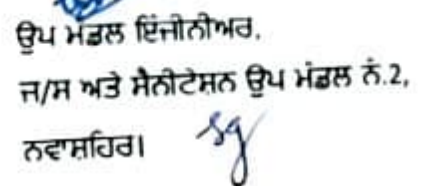 ਉਪ ਮੰਡਲ ਇੰਜੀਨੀਅਰ.
ਜ/ਸ ਅਤੇ ਸੈਨੀਟੇਸ਼ਨ ਉਪ ਮੰਡਲ ਨੰ.2,
ਨਵਾਸ਼ਹਿਰ।